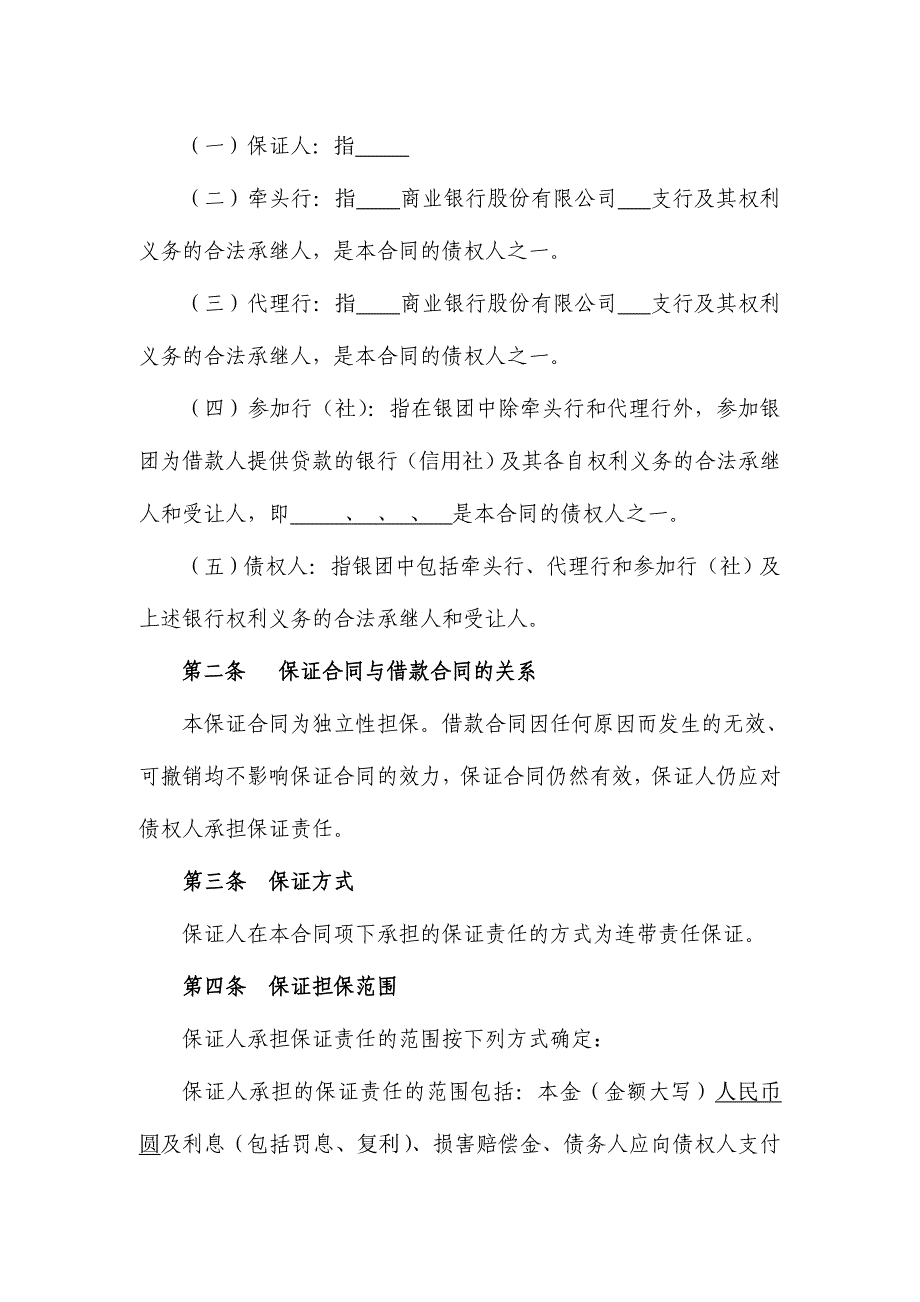 （一）保证人：指_____
（二）牵头行：指____商业银行股份有限公司___支行及其权利
义务的合法承继人，是本合同的债权人之一。
（三）代理行：指____商业银行股份有限公司___支行及其权利
义务的合法承继人，是本合同的债权人之一。
（四）参加行（社）：指在银团中除牵头行和代理行外，参加银
团为借款人提供贷款的银行（信用社）及其各自权利义务的合法承继
人和受让人，即_____、_、_、__是本合同的债权人之一。
（五）债权人：指银团中包括牵头行、代理行和参加行（社）及
上述银行权利义务的合法承继人和受让人。
第二条　保证合同与借款合同的关系
本保证合同为独立性担保。借款合同因任何原因而发生的无效、
可撤销均不影响保证合同的效力，保证合同仍然有效，保证人仍应对
债权人承担保证责任。
第三条　保证方式
保证人在本合同项下承担的保证责任的方式为连带责任保证。
第四条　保证担保范围
保证人承担保证责任的范围按下列方式确定：
保证人承担的保证责任的范围包括：本金（金额大写）人民币
圆及利息（包括罚息、复利）、损害赔偿金、债务人应向债权人支付